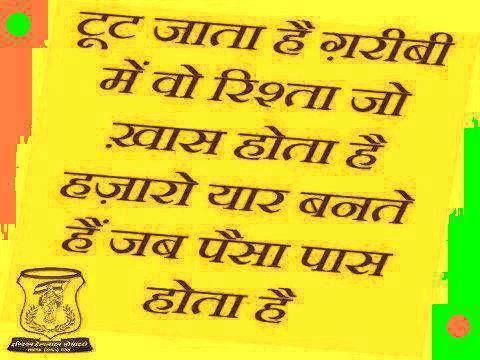 टूट जाता है ग़रीबी
में वो रिश्ता जो
ख़ास होता है
हज़ारो यार बनते
हैं जब पैसा पास
होता है